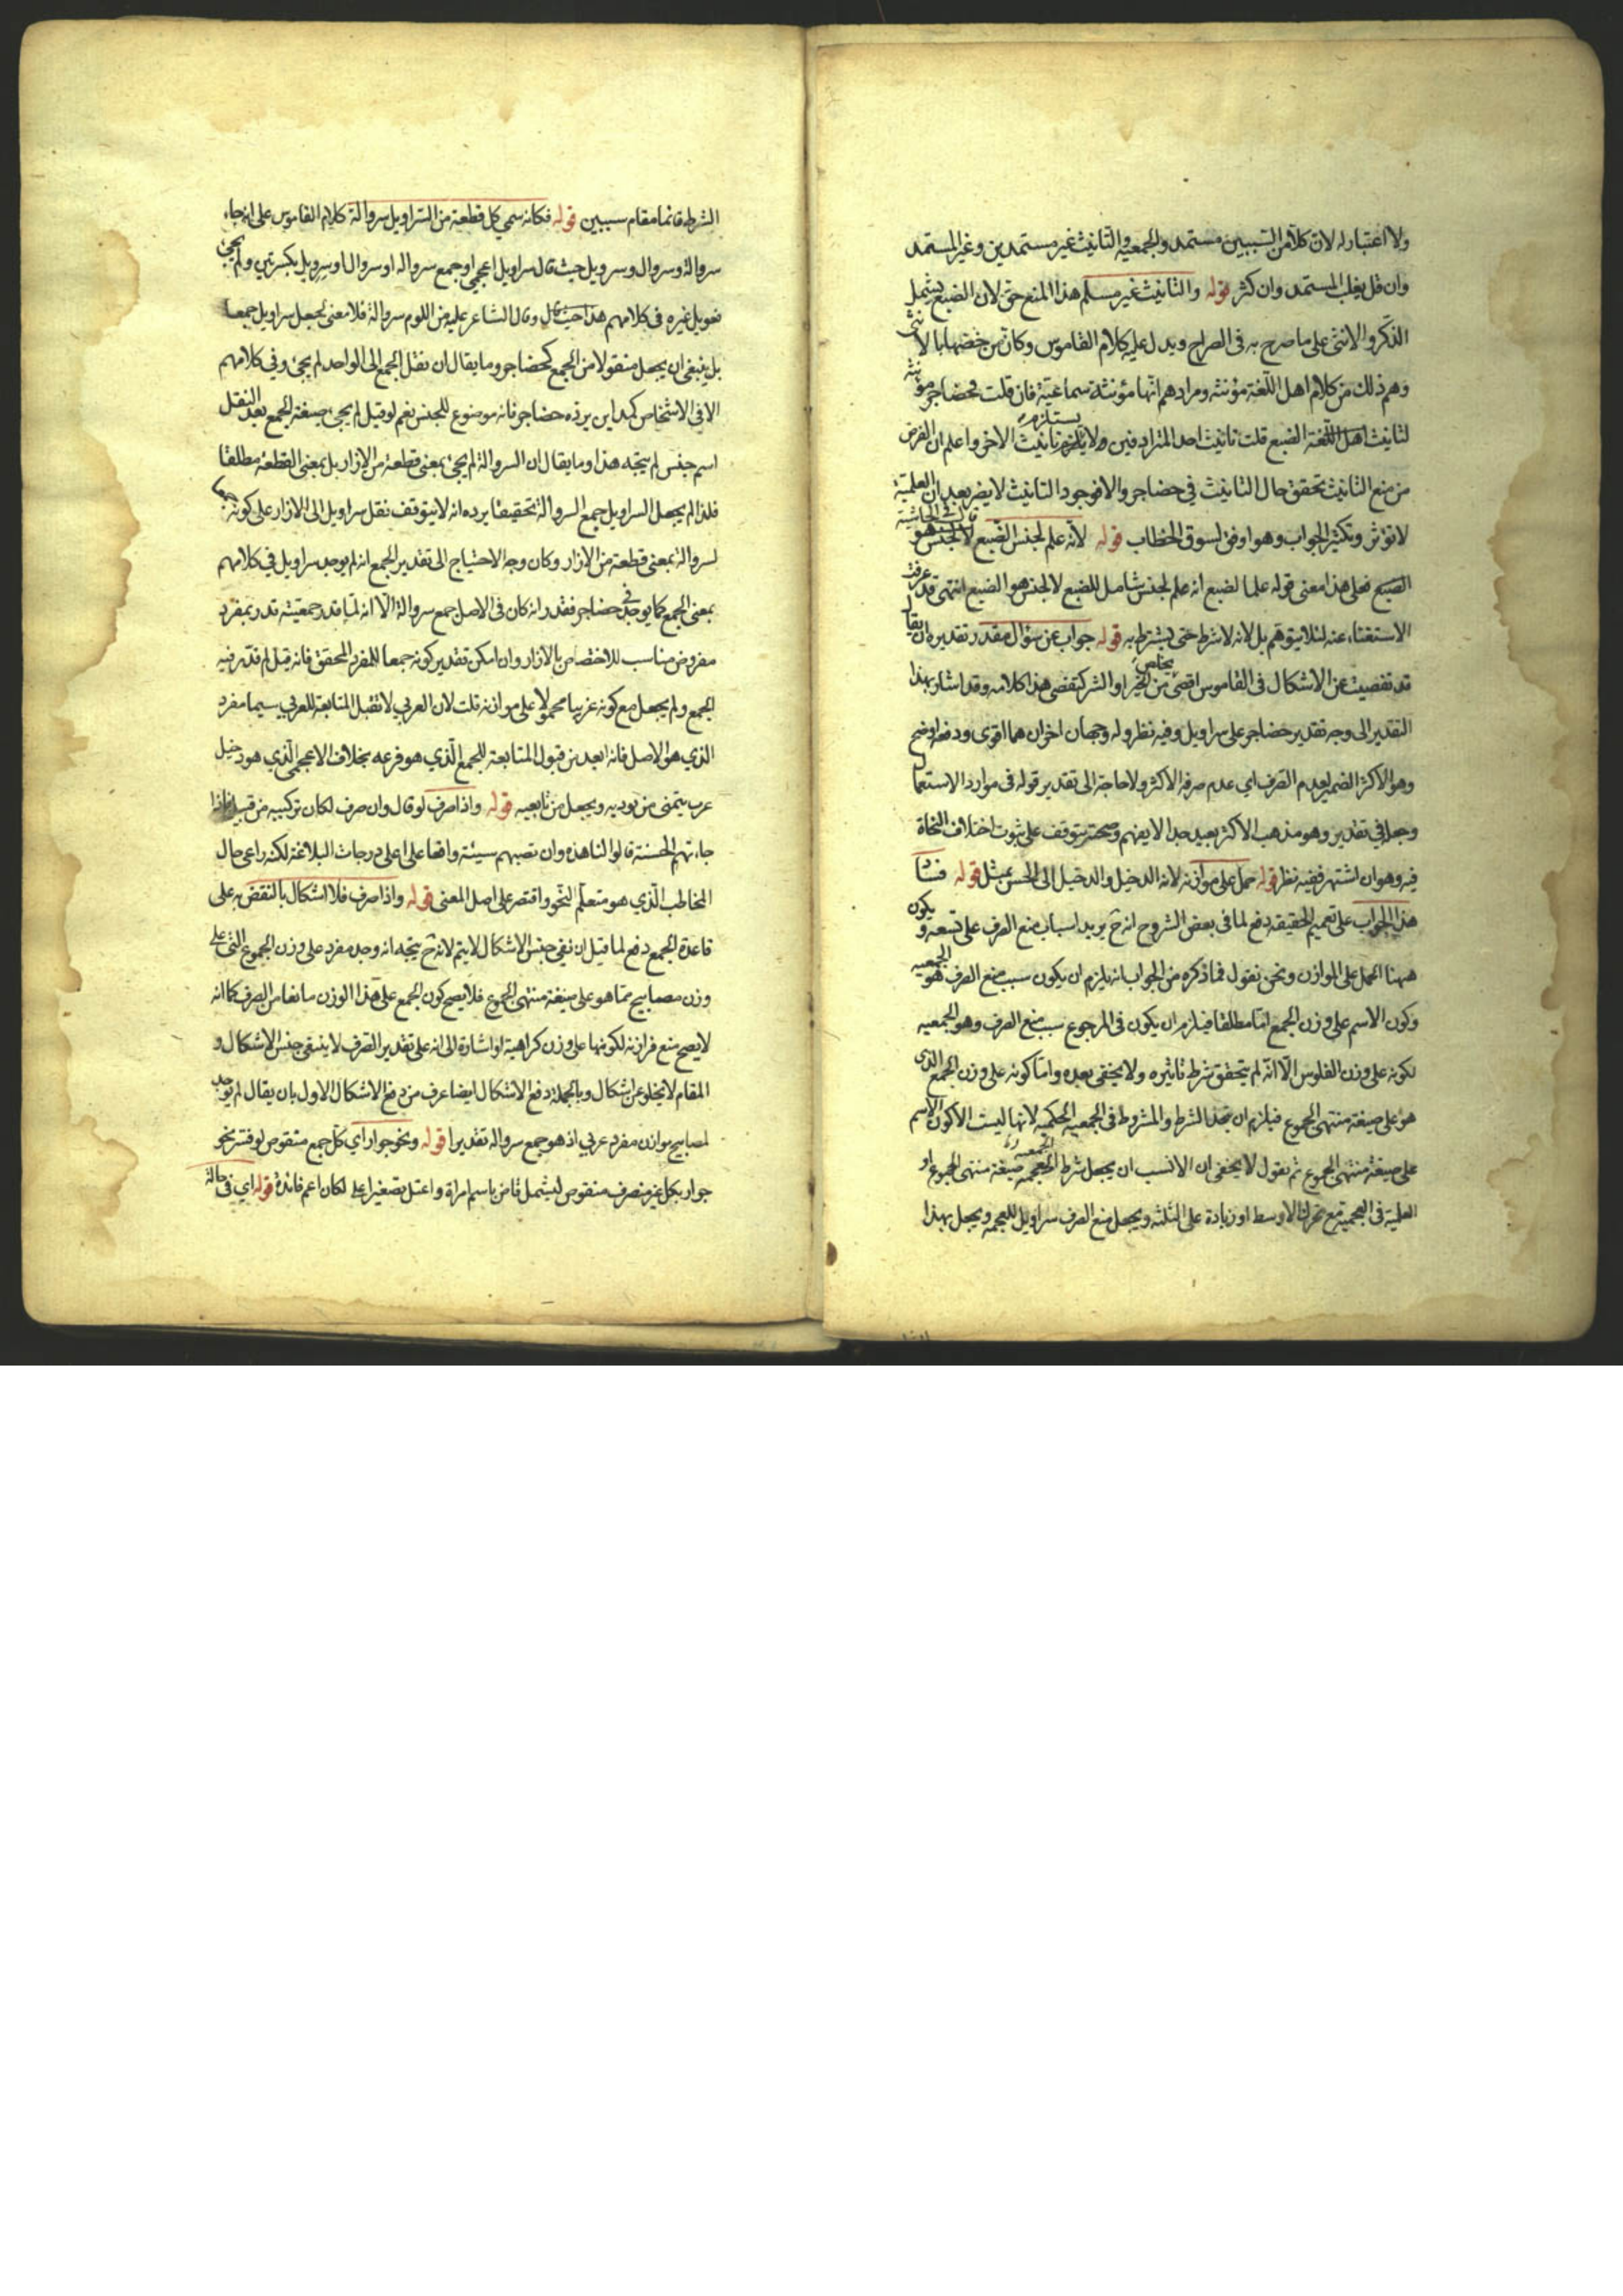 ولا اعتبار له لان كلا من السببين مستمد والجمعية والتانيث غير مستمدين وغير المستمد
وان قل يغلب المستمد وان كثر قوله والتانيث غير مسلم هذا المنع حق لان الضبع يشمل
الذكر والانثى على ما صرح به في الصراح ويدل عليه كلام القاموس وكان من خصها بالانثى
وهم ذلك من كلام اهل اللغة مؤنثه ومرادهم انها مؤنثة سماعية فان قلت فحضاجر مؤنثه
لتانيث اهل اللغة الضبع قلت تانيث احد المترادفين لا يستلزم تانيث الاخر واعلم ان الغرض
من منع التانيث تحقق حال التانيث في حضاجر والا فوجود التانيث لا يضر بعد ان العلمية
لا تؤثر وتكثير الجواب وهو اوفق لسوق الخطاب قوله لانه علم لجنس الضبع قال في الحاشية لا لجنس هو
الضبع فعلى هذا معنى قوله علما لضبع انه علم لجنس شامل للضبع لا لجنس هو الضبع انتهى قد عرفت
الاستغناء عنه لئلا يتوهم بل لانه لا شرط حتى يشترط به قوله جواب عن سؤال مقدر تقديره ان يقال
قد تفصيت عن الاشكال في القاموس افصى تخلص من الخير او الشر كتفصى هذا كلامه وقد اشار بهذا
التقدير الى وجه تقدير حضاجر على سراويل وفيه نظر وله وجهان اخران هما اقوى ودفعه اوضح
وهو الاكثر الضمير لعدم الصرف اي عدم صرفه الاكثر ولا حاجة الى تقدير قوله في موارد الاستعمال
وجعله في تقدير وهو مذهب الاكثر بعيد جدا لا يفهم وصحته يتوقف على ثبوت اختلاف النحاة
فيه وهو ان اشتهر ففيه نظر قوله حمل على موازنه لانه الدخيل والدخيل الى الحسن يمثل قوله فبناء
هذا الجواب على تعميم الحقيقة دفع لما في بعض الشروح انه ح يزيد اسباب منع الصرف على تسعة ويكون
ههنا الحمل على الموازن ونحن نقول فما ذكره من الجواب انه يلزم ان يكون سبب منع الصرف هو الجمعية
وكون الاسم على وزن الجمع اما مطلقا فيلزم ان يكون في المرجوع سبب منع الصرف وهو الجمعيه
لكونه على وزن الفلوس الا انه لم يتحقق شرط تاثيره ولا يخفى بعده واما كونه على وزن الجمع الذي
هو على صيغة منتهى الجموع فيلزم ان يتحد الشرط والمشروط في الجمعية الحكمية لانها ليست الا كون الاسم
على صيغة منتهى الجموع ثم نقول لا يخفى ان الانسب ان يجعل شرط الجمعية صيغة منتهى الجموع او
العلمية في العجمية مع تحرك الاوسط او زيادة على الثلثه ويجعل منع الصرف سراويل للعجمه ويجعل بهذا
الشرط قائما مقام سببين قوله فكانه سمي كل قطعة من السراويل سروالة كلام القاموس على انه جاء
سروالة وسروال وسرويل حيث قال سراويل اعجمي او جمع سرواله او سروال او سرويل بكسرتين ولم يجئ
فعويل غيره في كلامهم هذا حيث قال وقال الشاعر عليه من اللوم سروالة فلا معنى لجعل سراويل جمعا
بل ينبغي ان يجعل منقولا من الجمع كحضاجر وما يقال ان نقل الجمع الى الواحد لم يجئ وفي كلامهم
الا في الاشخاص كمداين يرده حضاجر فانه موضوع للجنس نعم لو قيل لم يجئ صيغة الجمع بعد النقل
اسم جنس لم يتجه هذا وما يقال ان السروالة لم يجئ بمعنى قطعة من الازار بل بمعنى القطعة مطلقا
فلذا لم يجعل السراويل جمع السروالة تحقيقا يرده انه لا يتوقف نقل سراويل الى الازار على كونه جمعا
لسروالة بمعنى قطعة من الازار وكان وجه الاحتياج الى تقدير الجمع انه لم يوجد سراويل في كلامهم
بمعنى الجمع كما يوجد في حضاجر فقدر انه كان في الاصل جمع سروالة الا انه لما قدر جمعيته قدر بمفرد
مفروض مناسب للاختصاص بالازار وان امكن تقدير كونه جمعا للمفرد المحقق فانه قيل لم قدر فيه
الجمع ولم يجعل مع كونه عربيا محمولا على موازنه قلت لان العربي لا تقبل المتابعة للعربي سيما مفرد
الذي هو الاصل فانه ابعد من قبول المتابعة للجمع الذي هو فرعه بخلاف الاعجمي الذي هو دخيل
عرب يتمنى من يوديه ويجعل من تابعيه قوله واذا صرف لو قال وان صرف لكان تركيبه من قبيل فاذا
جاءتهم الحسنة قالوا لنا هذه وان تصبهم سيئة واقعا على اعلى درجات البلاغة لكنه راعى حال
المخاطب الذي هو متعلم النحو واقتصر على اصل المعنى قوله واذا صرف فلا اشكال بالنقض به على
قاعدة الجمع دفع لما قيل ان نفي جنس الاشكال لا يتم لانه ح يتجه انه وجد مفرد على وزن الجموع التي على
وزن مصابيح مما هو على صيغة منتهى الجموع فلا يصح كون الجمع على هذا الوزن مانعا من الصرف كما انه
لا يصح منع فرازنة لكونها على وزن كراهية او اشارة الى انه على تقدير الصرف لا ينبغي جنس الاشكال و
المقام لا يخلو عن اشكال وبالجملة دفع الاشكال ايضا عرف من دفع الاشكال الاول بان يقال لم يوجد
لمصابيح موازن مفرد عربي اذ هو جمع سرواله تقديرا قوله ونحو جوار اي كل جمع منقوص لو فسر نحو
جوار بكل غير منصرف منقوص ليشمل قاض باسم امراة واعيل تصغير اعلى لكان اعم فائدة قوله اي في حالة